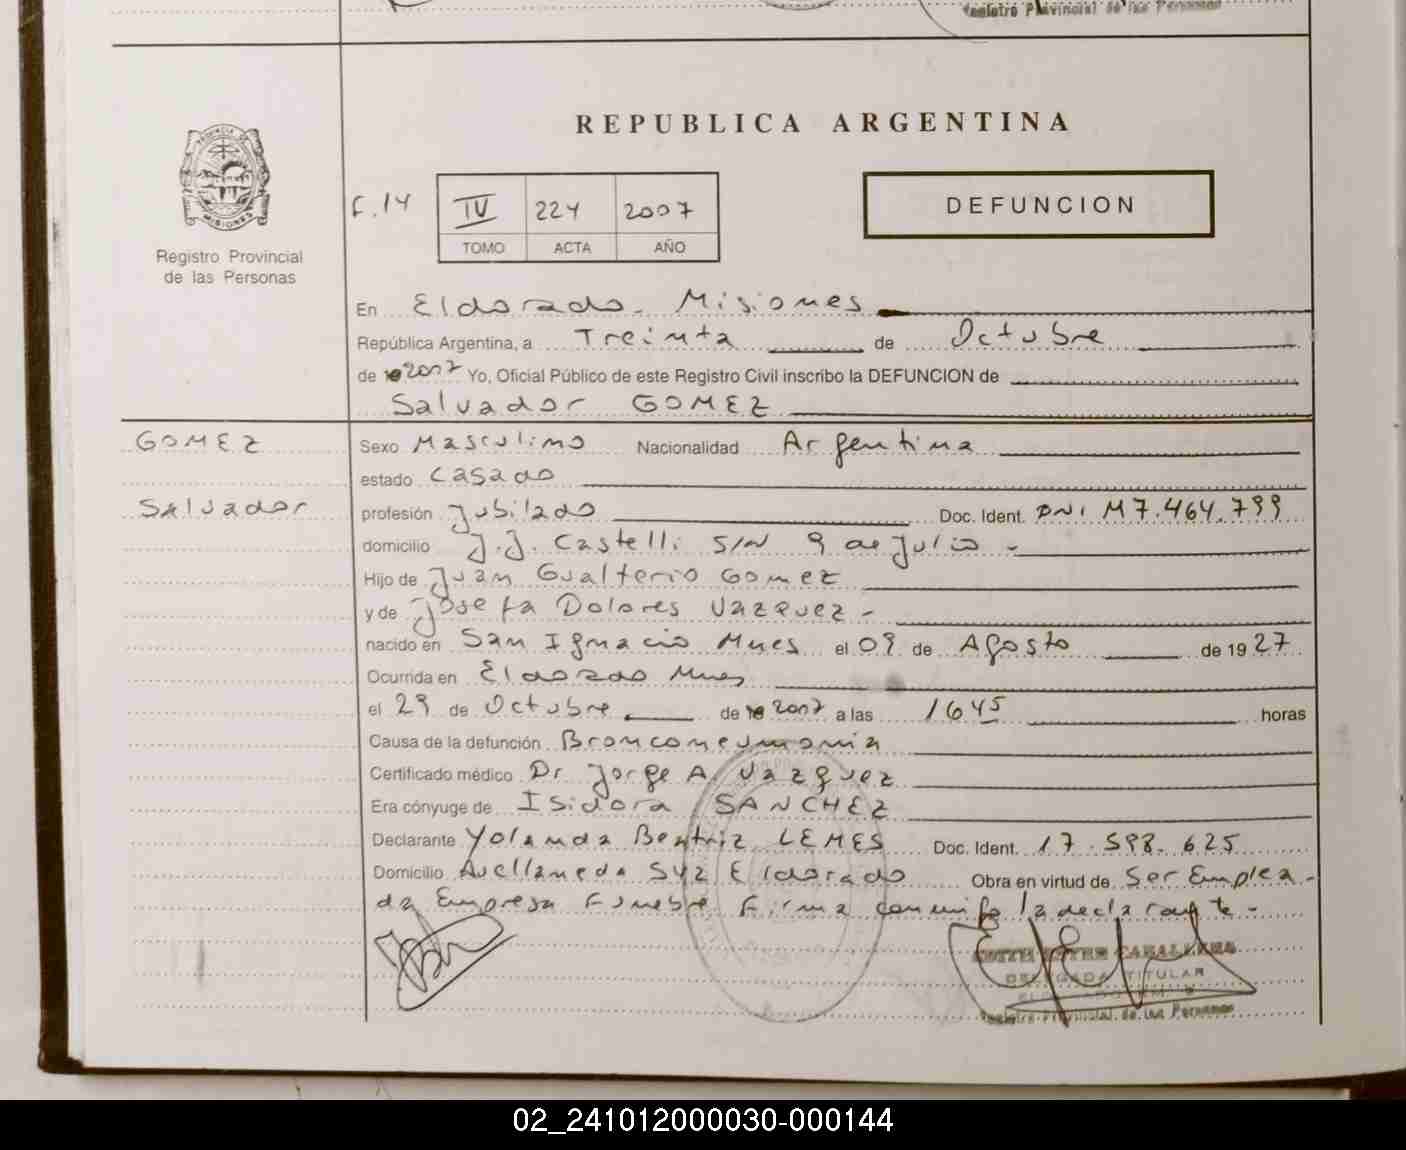 Registro Provincial de las Personas
REPUBLICA ARGENTINA
PROVINCIA DE
MISIONES
Registro Provincial
de las Personas
F.14
IV 224 2007
TOMO ACTA AÑO
DEFUNCION
En Eldorado. Misiones
República Argentina, a Treinta de Octubre
de 2007 Yo, Oficial Público de este Registro Civil inscribo la DEFUNCION de
Salvador GOMEZ
GOMEZ
Salvador
Sexo Masculino Nacionalidad Argentina
estado Casado
profesión Jubilado Doc. Ident. DNI M7.464.799
domicilio J.J. Castelli S/N 9 de Julio -
Hijo de Juan Gualterio Gomez
y de Josefa Dolores Vazquez -
nacido en San Ignacio Mnes el 09 de Agosto de 1927
Ocurrida en Eldorado Mnes
el 29 de Octubre de 2007 a las 1645 horas
Causa de la defunción Bronconeumonia
Certificado médico Dr Jorge A. Vazquez
Era cónyuge de Isidora SANCHEZ
Declarante Yolanda Beatriz LEMES Doc. Ident. 17.598.625
Domicilio Avellaneda 542 Eldorado Obra en virtud de Ser Emplea-
da Empresa Funebre Firma conmigo la declarante -
CABALLERO
DELEGADA TITULAR
Registro Provincial de las Personas
02_241012000030-000144